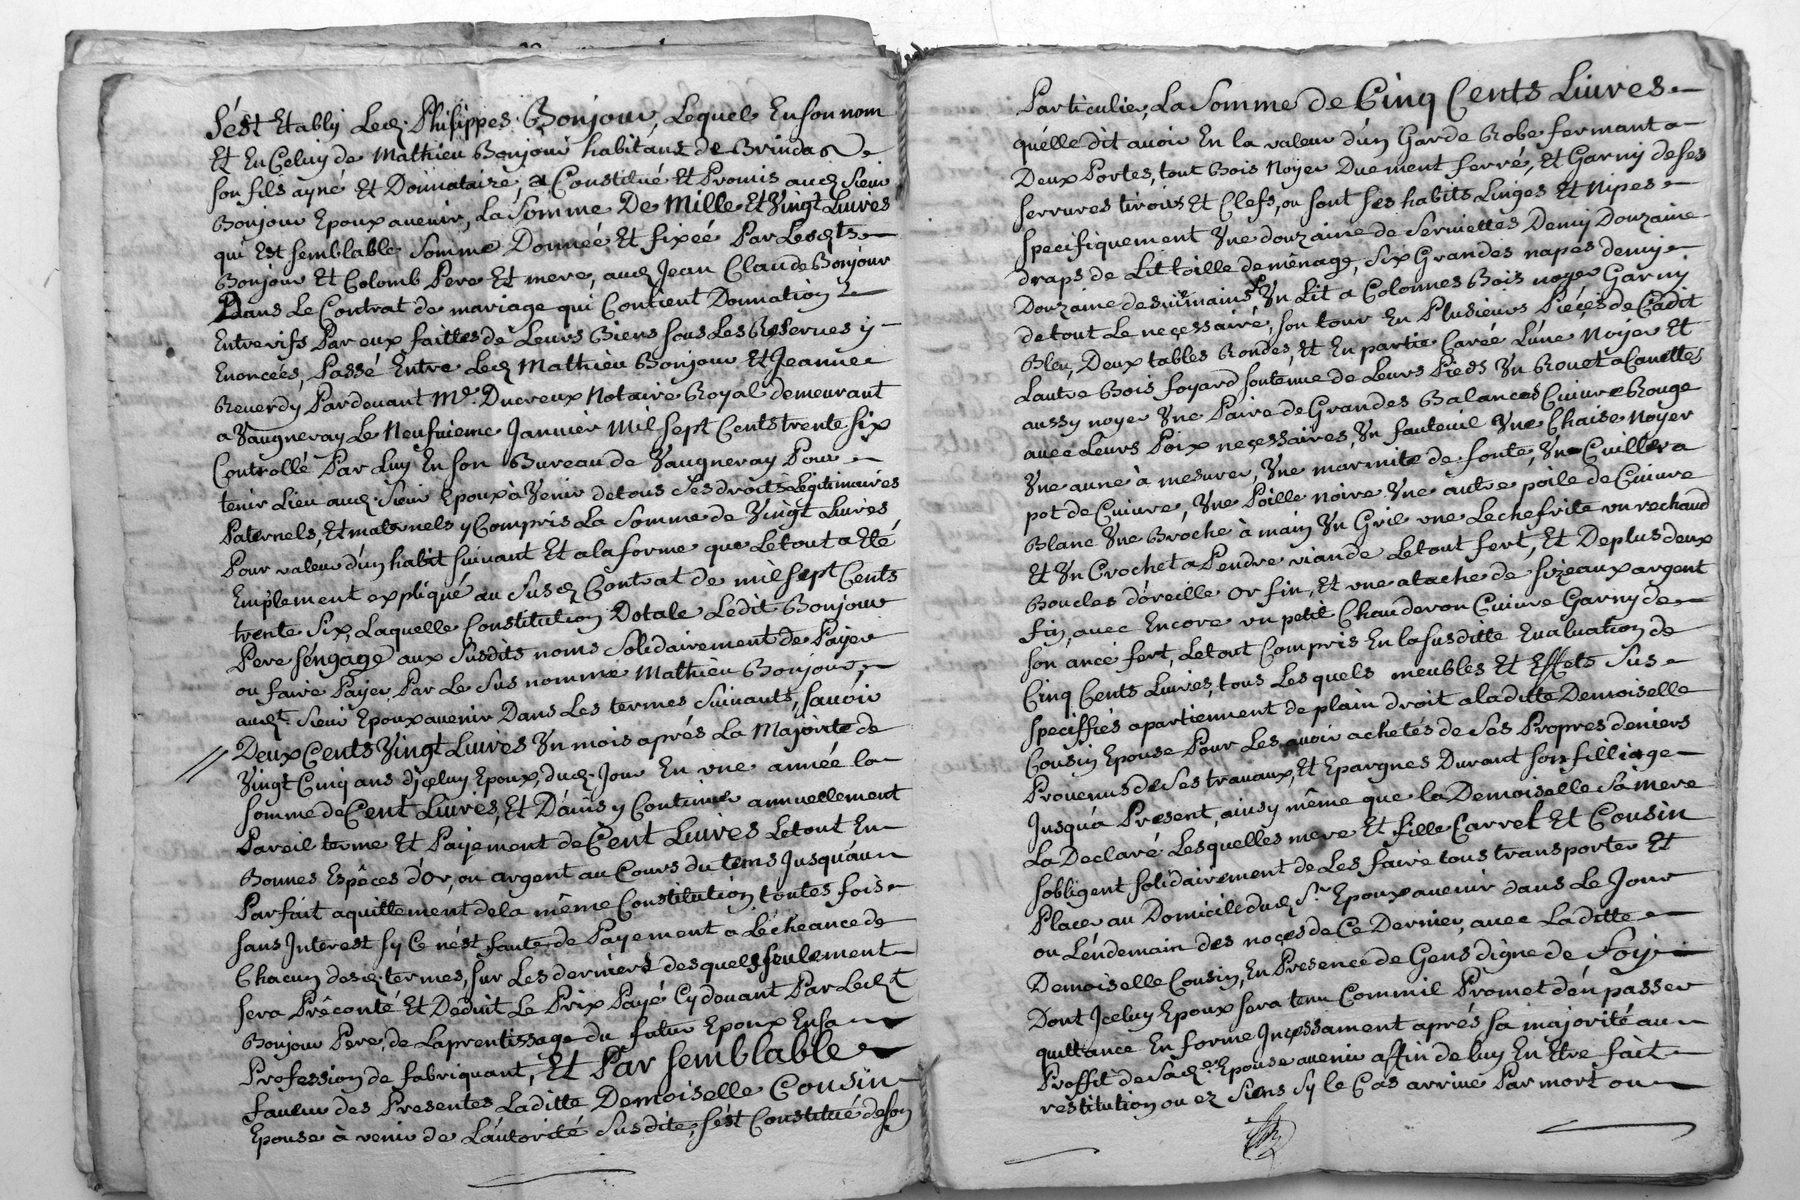 S'ést Etably Led. Philippes Bonjour, Lequel En son nom
Et En Celuy de Mathieu Bonjour habitans de Brindas
son fils ayné Et Donnataire, a Constitué Et Promis aud. Sieur
Bonjour Epoux avenir, La Somme De Mille Et Vingt Livres
qui Est semblable Somme Donneé Et fixeé Par Lesdts
Bonjour Et Colomb Pere Et mere, aud. Jean Claude Bonjour
Dans Le Contrat de mariage qui Contient Donnation
Entrevifs Par eux faittes de Leurs Biens sous Les Reserves y
Enoncées, Passé Entre Led. Mathieu Bonjour Et Jeanne
Reverdy Pardevant Me. Ducreux Notaire Royal demeurant
a Vaugneray Le Neufvieme Janvier Mil sept Cents trente six
Controllé Par Luy En son Bureau de Vaugneray Pour
tenir Lieu aud. Sieur Epoux à Venir de tous Ses droits Legitimaires
Paternels, Et maternels y Compris La Somme de Vingt Livres
Pour valeur d'un habit suivant Et a la forme que Le tout a Eté
Emplement expliqué au Susd. Contrat de mil sept Cents
trente Six, Laquelle Constitution Dotale Ledit Bonjour
Pere s'éngage aux Susdits noms Solidairement de Payer
ou faire Payer Par Le Sus nommé Mathieu Bonjour,
audt. Sieur Epoux avenir Dans Les termes Suivants, savoir
Deux Cents Vingt Livres Un mois aprés La Majorite de
Vingt Cinq ans d'jceluy Epoux, dud. Jour En une année la
somme de Cent Livres, Et D'ainsy Continuer annuellement
Pareil terme Et Payement de Cent Livres Le tout En
Bonnes Espéces d'or, ou argent au Cours du tems Jusqu'au
Parfait aquittement de la même Constitution toutes fois
sans Interest sy Ce n'ést faute de Payement a L'écheance de
Chacun desd. termes, sur Les derniers desquels seulement
sera Préconté Et Déduit Le Prix Payé Cy devant Par Ledt
Bonjour Pere, de L'aprentissage du futur Epoux En sa
Profession de fabriquant, Et Par semblable
faveur des Presentes Laditte Demoiselle Cousin
Epouse à venir de L'autorité Susdite, s'ést Constitué de son
Particulier, La Somme de Cinq Cents Livres
qu'élle dit avoir En la valeur d'un Garde Robe fermant a
Deux Portes, tout Bois Noyer Duement ferré, Et Garny de ses
serrures tiroirs Et Clefs, ou sont ses habits Linges Et Nipes
specifiquement Une douzaine de Serviettes Demy Douzaine
draps de Lit toille de ménage, six Grandes napes demy
Douzaine d'essuimains, Un Lit a Colonnes Bois noyer Garny
de tout Le neçessairé, son tour En Plusieurs Pieçes de Cadit
Bleu, Deux tables Rondes, Et En partie Carée L'une Noyer Et
Lautre Bois foyard soutenue de Leurs Pieds Un Rouet a Canettes
aussy noyer Une Paire de Grandes Balances Cuivre Rouge
avec Leurs Poix neçessaires, Un fauteuil Une Chaise Noyer
Une aune à mesurer, Une marmite de fonte, Un Cuiller a
pot de Cuivre, Une Poille noire Une autre poile de Cuivre
Blanc Une Broche à main Un Gril une Lechefrite un rechaud
Et Un Crochet a Pendre viande Le tout fert, Et De plus deux
Boucles d'oreille Or fin, Et une atache de sizeaux argent
fin, avec Encore un petit Chauderon Cuivre Garny de
son ance fert, Le tout Compris En la susditte Evaluation de
Cinq Cents Livres, tous Les quels meubles Et Effets Sus
speciffiés apartiennent de plain droit a laditte Demoiselle
Cousin Epouse Pour Les avoir achetés de Ses Propres deniers
Provenus de Ses travaux, Et Epargnes Durant son filliage
Jusqu'a Present, ainsy même que la Demoiselle Sa mere
La Declaré Lesquelles mere Et fille Carret Et Cousin
sobligent solidairement de Les faire tous transporter Et
Placer au Domicile dud. Sr. Epoux avenir dans Le Jour
ou L'éndemain des noçes de Ce Dernier, avec Laditte
Demoiselle Cousin, En Presence de Gens digne de Foy
Dont Jceluy Epoux sera tenu Comm'il Promet d'én passer
quittance En forme Jnçessament aprés sa majorité au
Proffit de Sad. Epouse avenir affin de luy En Etre fait
restitution ou ez Siens sy le Cas arrive Par mort ou